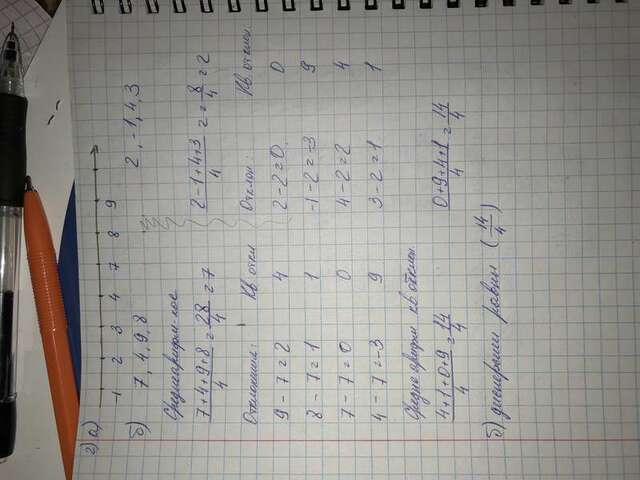 2) а)
-1 2 3 4 7 8 9
б) 7, 4, 9, 8 2, -1, 4, 3
Среднеарифм-кое
7+4+9+8/4 = 28/4 = 7 2-1+4+3/4 = = 8/4 = 2
Отклонения: Кв откл Отклон: Кв. отклон
9 - 7 = 2 4 2 - 2 = 0 0
8 - 7 = 1 1 -1 - 2 = -3 9
7 - 7 = 0 0 4 - 2 = 2 4
4 - 7 = -3 9 3 - 2 = 1 1
Средне арифм кв отклон
4+1+0+9/4 = 14/4 0+9+4+1/4 = 14/4
б) дисперсии равны (14/4)